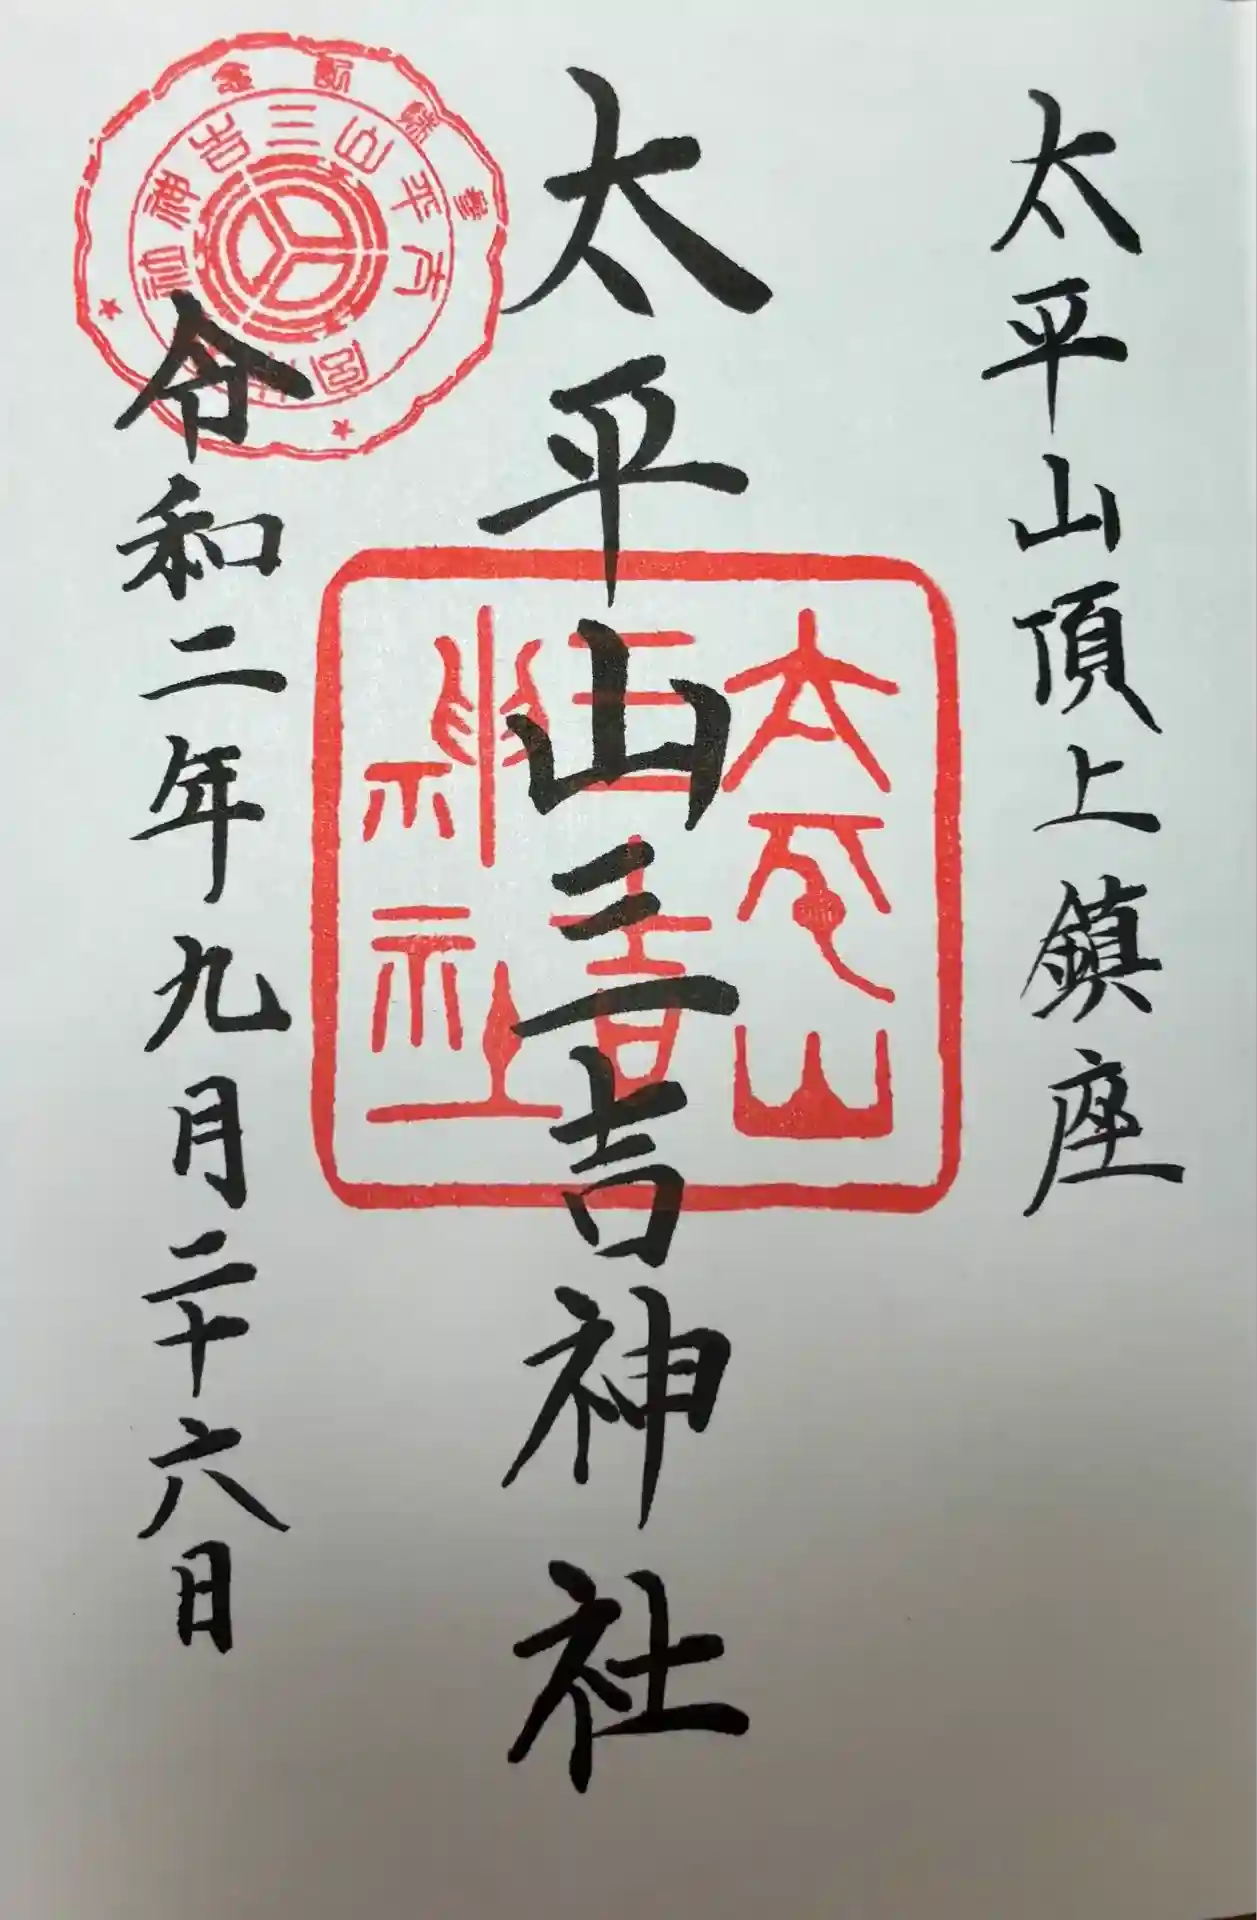 太平山頂上鎮座
太平山三吉神社
太平山
三吉
神社
令和二年九月二十六日
太平山三吉神社